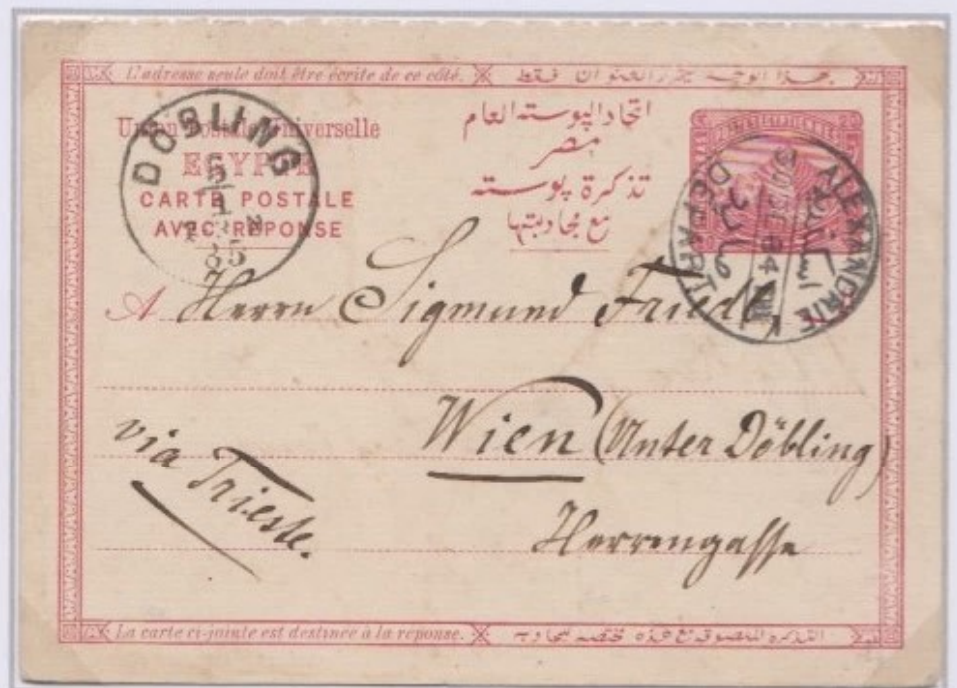 L'adresse seule doit être écrite de ce côté.
بهذا الوجه يحرر العنوان فقط
Union Postale Universelle
EGYPTE
CARTE POSTALE
AVEC RÉPONSE
اتحاد البوسته العام
مصر
تذكرة بوسته
مع مجاوبتها
DÖBLING
5
1
85
ALEXANDRIE
DEPART
اسكندرية
84
A Herrn Sigmund Friedl,
Wien (Unter Döbling)
via Trieste.
Herrengasse
La carte ci-jointe est destinée à la réponse.